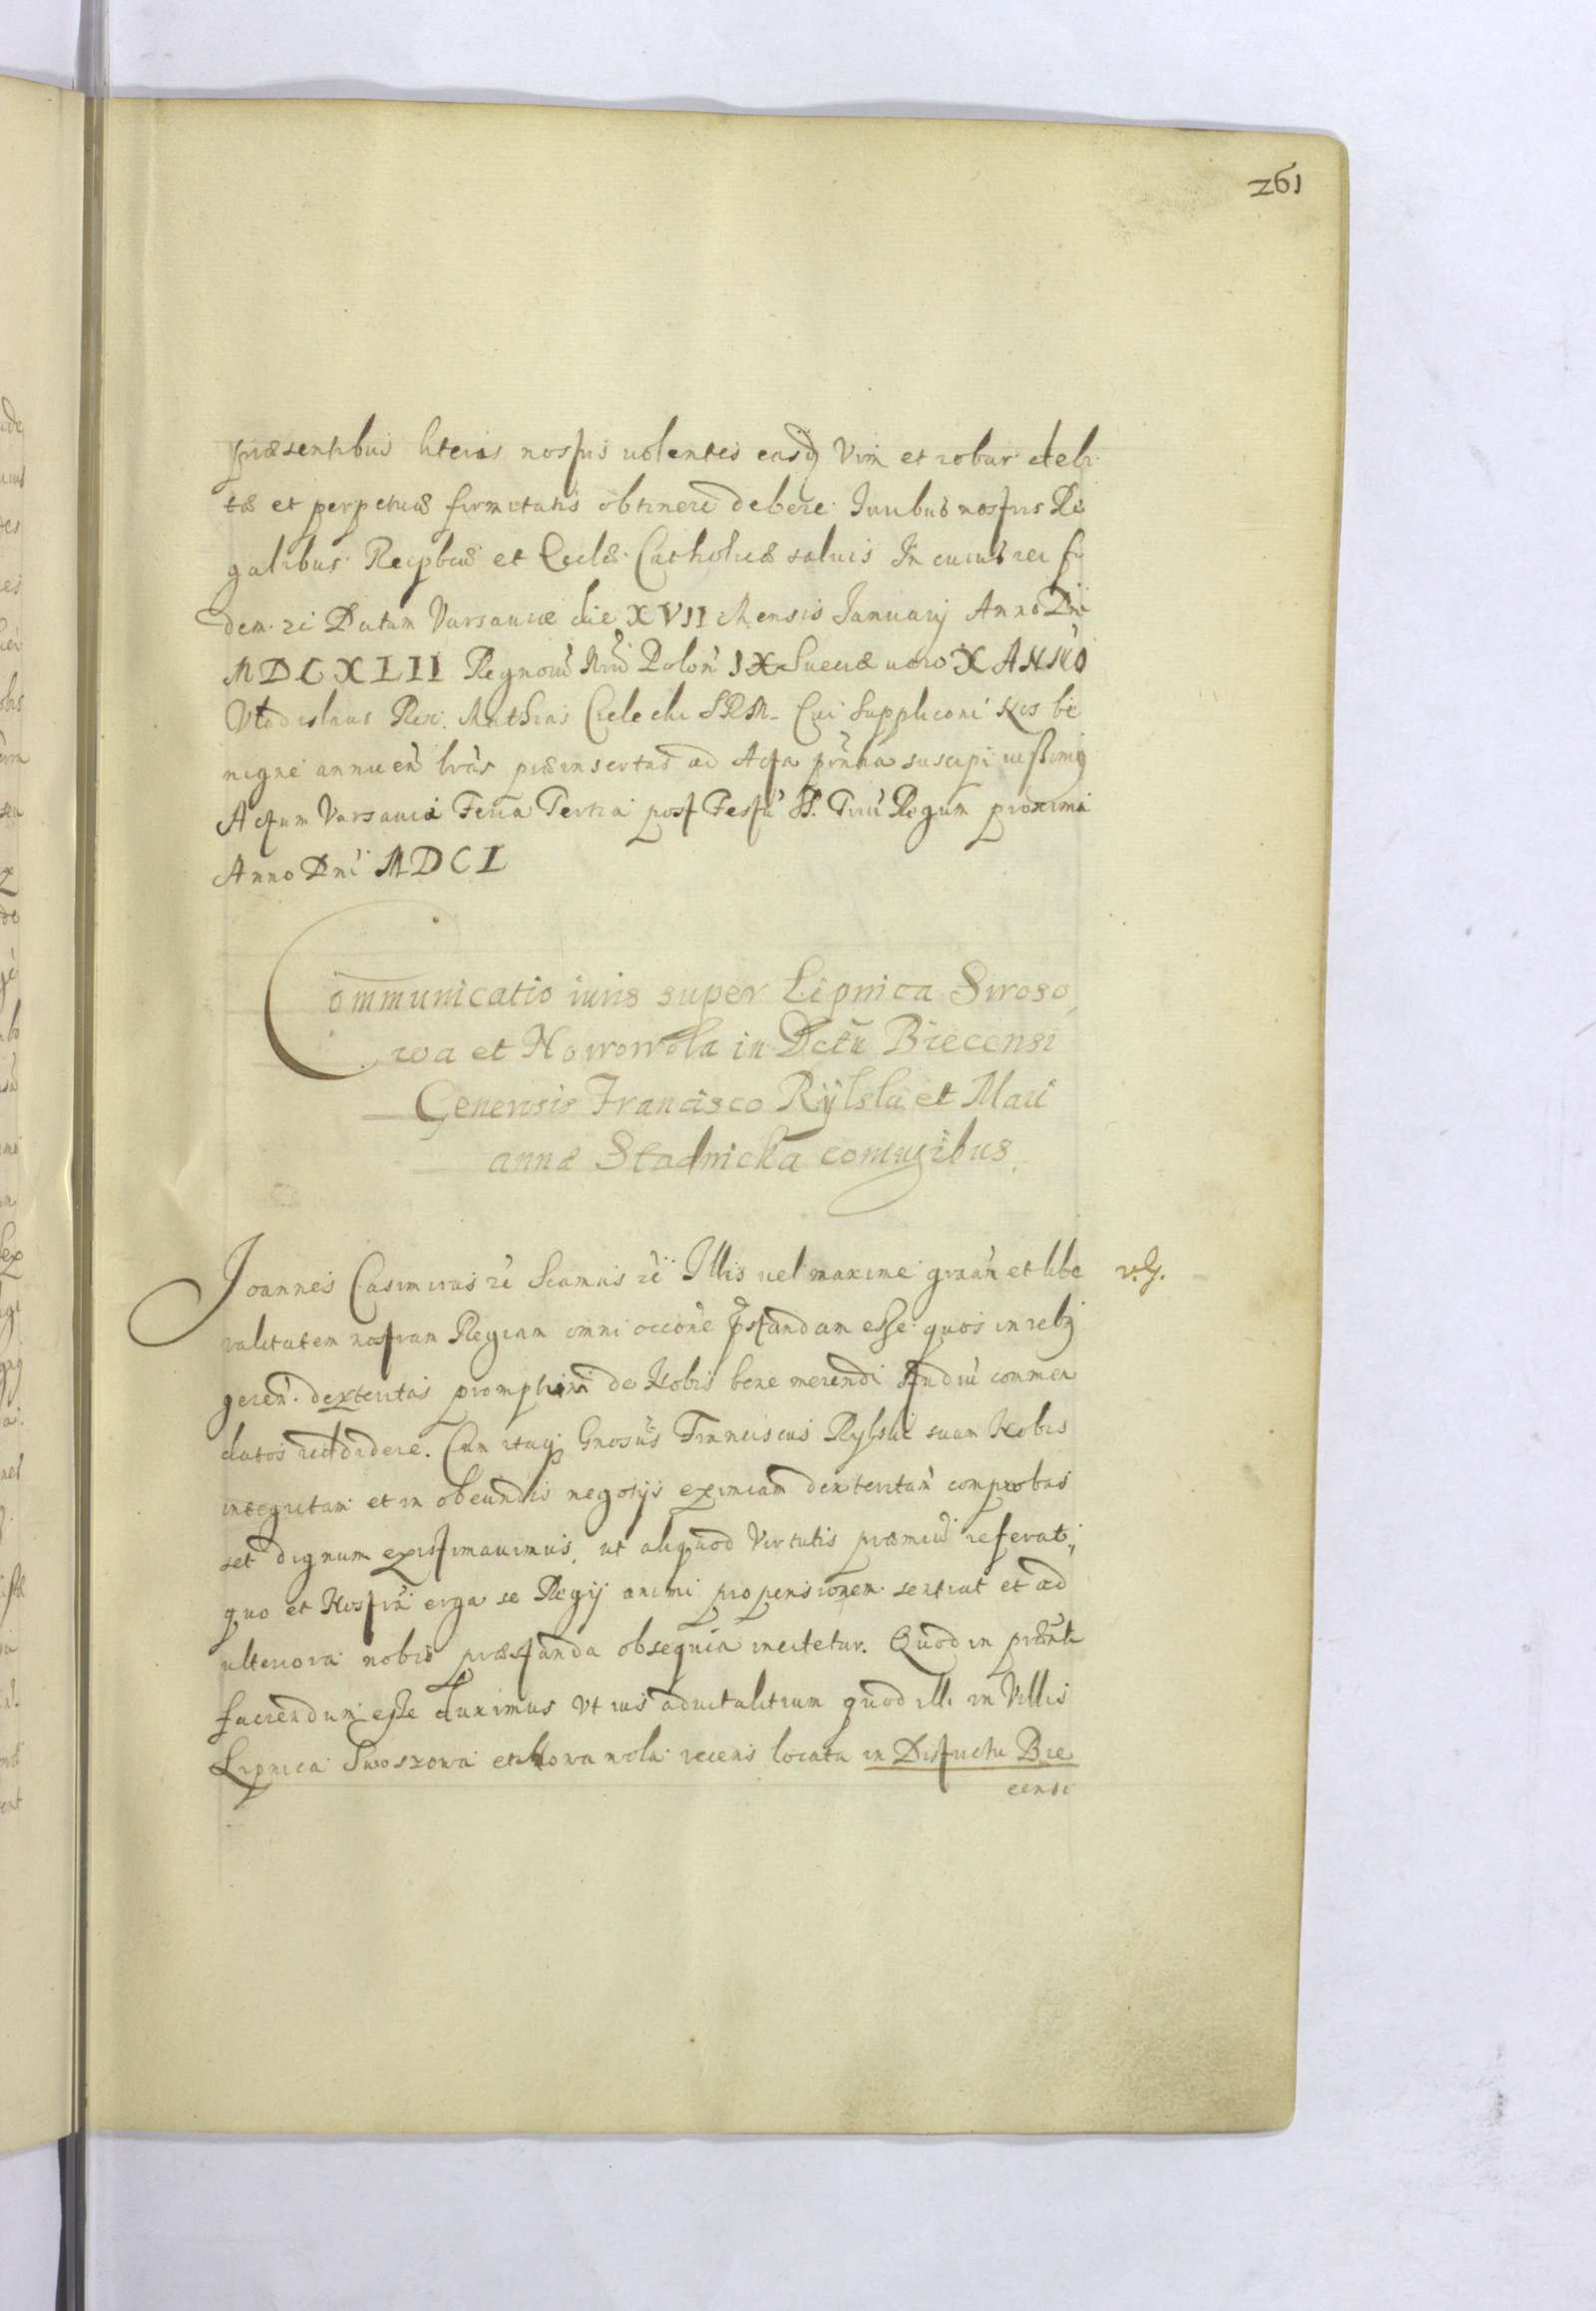 261
præsentibus literis nostris uolentes easq Vim et robur debi
tæ et perpetuæ firmitatis obtinere debere. Iuribus nostris Re
galibus Reipbcæ et Ecclæ Catholicæ saluis In cuius rei fi
dem. ec Datum Varsauiæ die XVII Mensis Ianuarij Anno Dni
MDCXLII Regnorũ Nrũ Polon̄ IX Sueciæ uero X ANNO
Vladislaus Rex. Mathias Cielecki SRM. Cui Supplicōni Nos be
nigne annuen̄ lras præinsertas ad Acta prnȧ suscipi iussimq
Actum Varsauiæ Feria Tertia post Festũ SS. Triũ Regum proxima
Anno Dni MDCL
Communicatio iuris super Lipnica Swoso,
wa et Nowowola in Dctũ Biecensi
Generosis Francisco Rÿlski et Mari
annæ Stadnicka coniugibus.
Joannes Casimirus ec Scamus ec Illis uel maxime gratān et libe
v. G.
ralitatem nostram Regiam omni occōne p̄standam esse quos in rebq
geren̄. dexteritas promptum de Nobis bene merendi studiũ commen
datos reddidere. Cum itaq Gnosus Franciscus Rylski suam Nobis
integritam et in obeundis negotijs eximiam dexteritam̄ comprobas
set dignum existimauimus, ut aliquod Virtutis præmiũ referat,
quo et Nostrā erga se Regij animi propensionem sentiat et ad
ulteriora nobis præstanda obsequia incitetur. Quod in prænti
faciendum esse duximus Vt ius aduitalitium quod illi in Villis
Lipnica Swoszowa et Nowa wola recens locata in Districtu Bie
censi